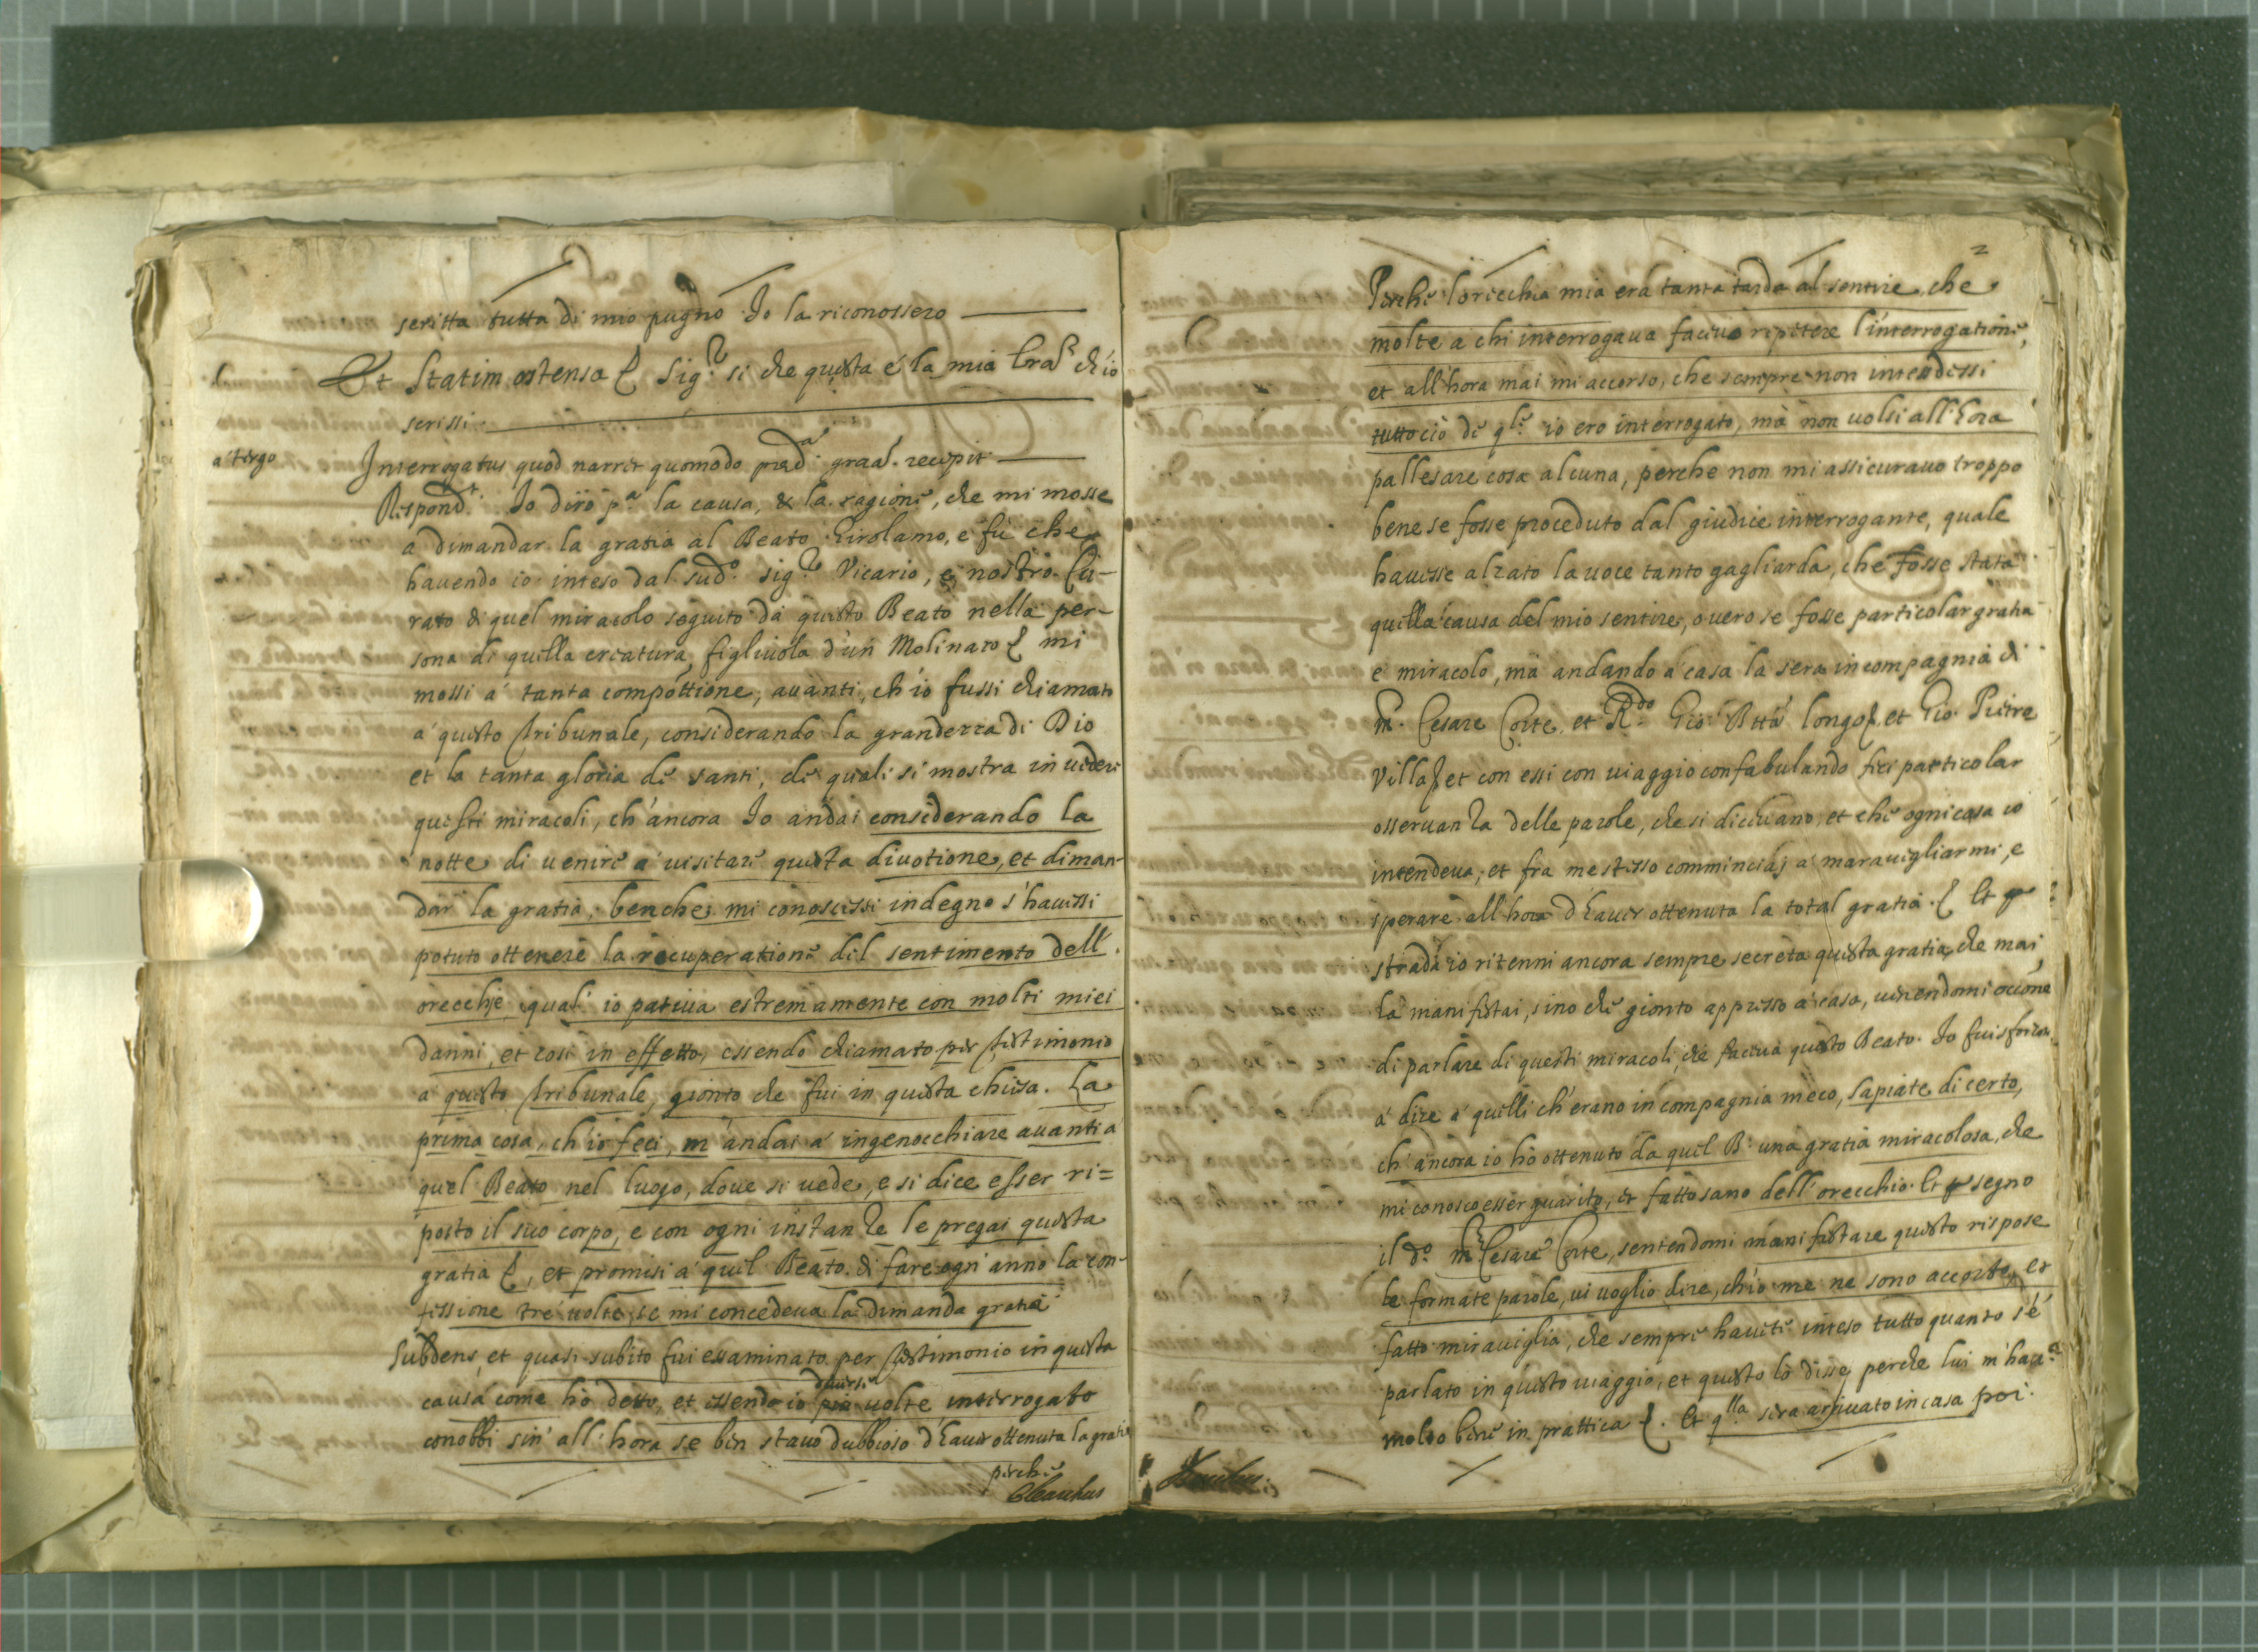 scritta tutta di mio pugno Io la riconossero
Et Statim ostensa Sig.r si che questa è la mia lra ch'io
scrissi
a' tergo
Interrogatus quod narret quomodo pred.a graa. recepit
Respond.t Io dirò p.a la causa, & la ragione, che mi mosse
a dimandar la gratia al Beato Girolamo, e fù che
hauendo io inteso dal sud.o sig.r Vicario, e nostro Cu-
rato di quel miracolo seguito da questo Beato nella per-
sona di quella creatura figliuola d'un Molinaro mi
mossi a' tanta compottione, auanti, ch'io fussi chiamato
a' questo tribunale, considerando la grandezza di Dio
et la tanta gloria de santi, de quali si mostra in ueder
questi miracoli, ch'ancora Io andai considerando la
notte di uenire a' uisitare questa diuotione, et diman-
dar la gratia, benche mi conoscessi indegno s'hauessi
potuto ottenere la recuperatione del sentimento dell'
orecchie quali io patiua estremamente con molti miei
danni, et cosi in effetto, essendo chiamato per testimonio
a' questo tribunale, gionto che fui in questa chiesa. La
prima cosa, ch'io feci, m'andai a' ingenocchiare auanti a
quel Beato nel luogo, doue si uede, e si dice esser ri=
posto il suo corpo, e con ogni instanza le pregai questa
gratia, et promisi a' quel Beato di fare ogn'anno la con-
fessione tre uolte, se mi concedeua la dimanda gratia
Subdens, et quasi subito fui essaminato per testimonio in questa
causa come hò detto, et essendo io più uolte interrogato
diuerse
conobbi sin' all'hora se ben stauo dubbioso d'hauer ottenuta la gratia
perche
2
Perche l'orecchia mia era tanta tarda al sentire che
molte a chi interrogaua faceuo ripetere l'interrogatione,
et all'hora mai mi accorso, che sempre non intendessi
tutto ciò de q.le io ero interrogato, mà non uolsi all'hora
pallesare cosa alcuna, perche non mi assicurauo troppo
bene se fosse proceduto dal giudice interrogante, quale
hauesse alzato la uoce tanto gagliarda, che fosse stata
quella causa del mio sentire, ouero se fosse particolar gratia
e miracolo, mà andando a' casa la sera in compagnia di
m. Cesare Corte, et R.do Gio: Btta Longo et Gio. Pietro
Villa et con essi con uiaggio confabulando feci particolar
osseruanza delle parole, che si diceuano, et che ogni cosa io
intendeua, et fra me stesso cominciaj a' marauigliarmi, e
sperare all'hora d'hauer ottenuta la total gratia. Et p
strada io ritenni ancora sempre secreta questa gratia, che mai
la manifestai, sino che gionto appresso a' casa, uenendomi occ.one
di parlare di questi miracoli, che faceua questo Beato. Io fui sforzato
a' dire a' quelli ch'erano in compagnia meco, sapiate di certo,
ch'ancora io hò ottenuto da quel B: una gratia miracolosa, che
mi conosco esser guarito, et fatto sano dell'orecchio. Et p segno
il d.o m. Cesare Corte, sentendomi manifestare questo rispose
le formate parole, ui uoglio dire, ch'io me ne sono accorto, et
fatto miraueglia, che sempre hauete inteso tutto quanto s'è
parlato in questo uiaggio, et questo lo disse, perche lui m'haa.a
molto bene in prattica. Et q.lla sera arriuato in casa poi